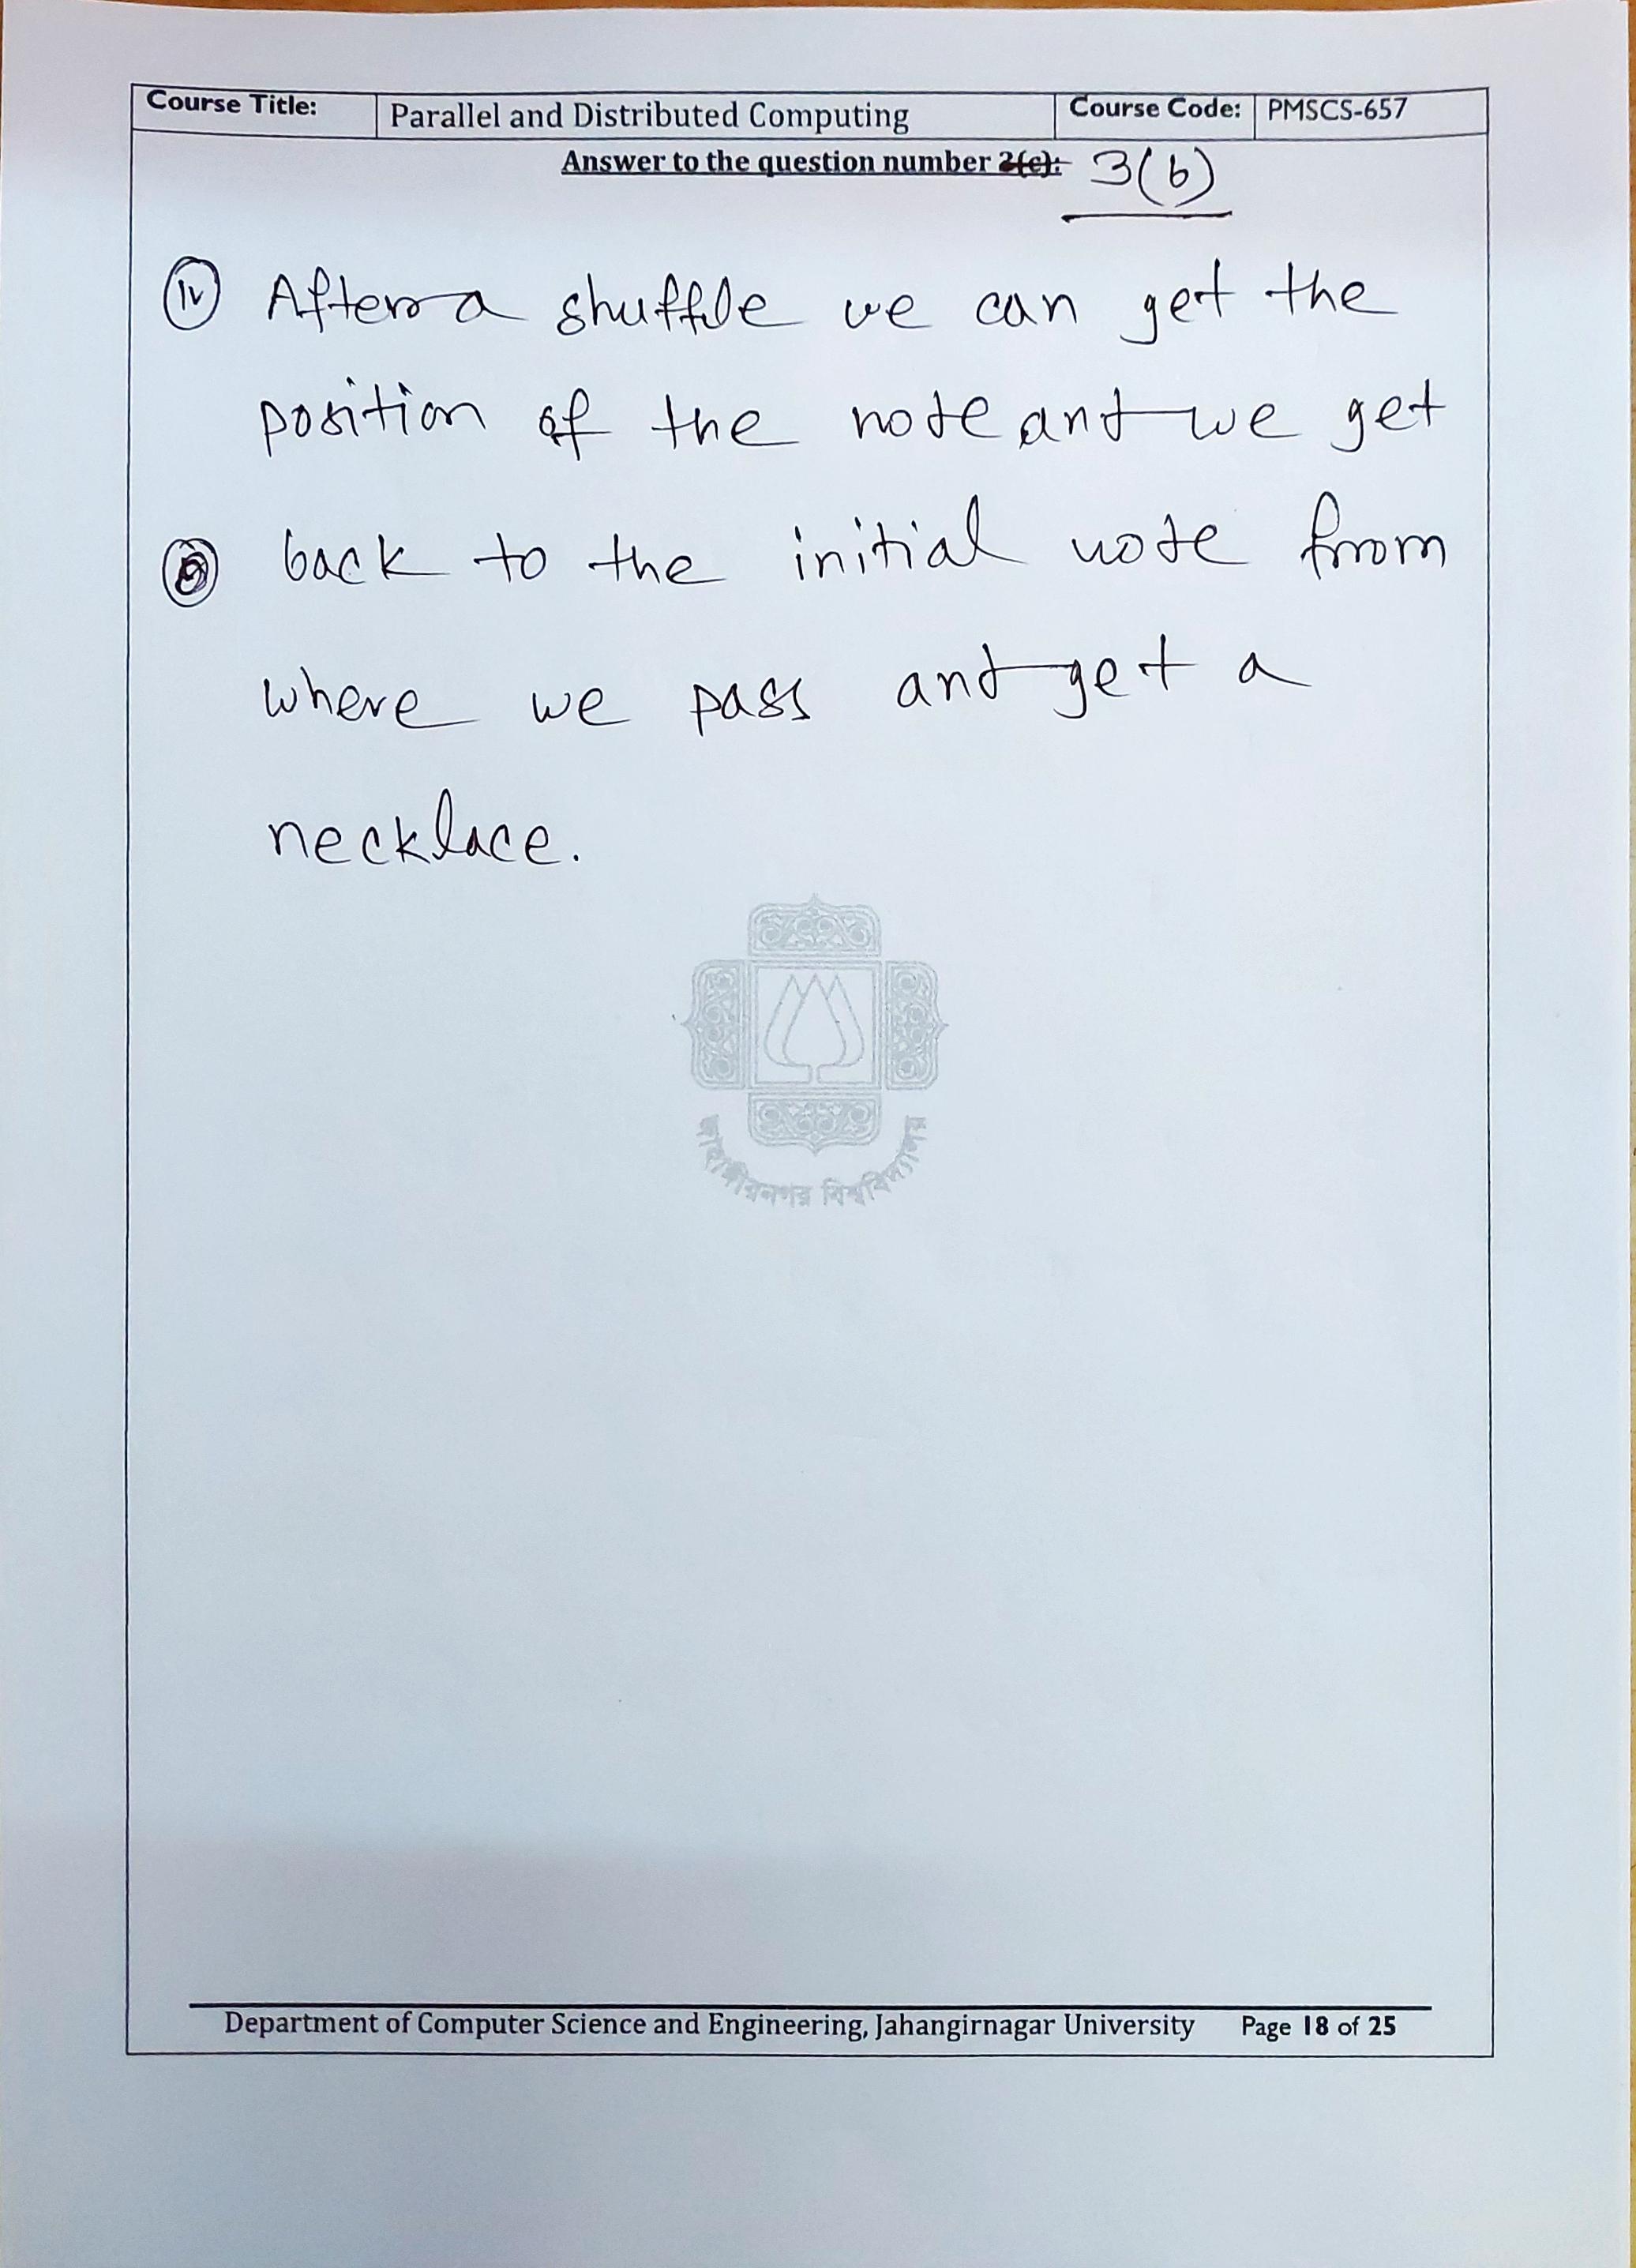 Course Title: Parallel and Distributed Computing Course Code: PMSCS-657
Answer to the question number 2(c): 3(b)
(iv) After a shuffle we can get the
position of the note and we get
back to the initial note from
where we pass and get a
necklace.
জাহাঙ্গীরনগর বিশ্ববিদ্যালয়
Department of Computer Science and Engineering, Jahangirnagar University Page 18 of 25